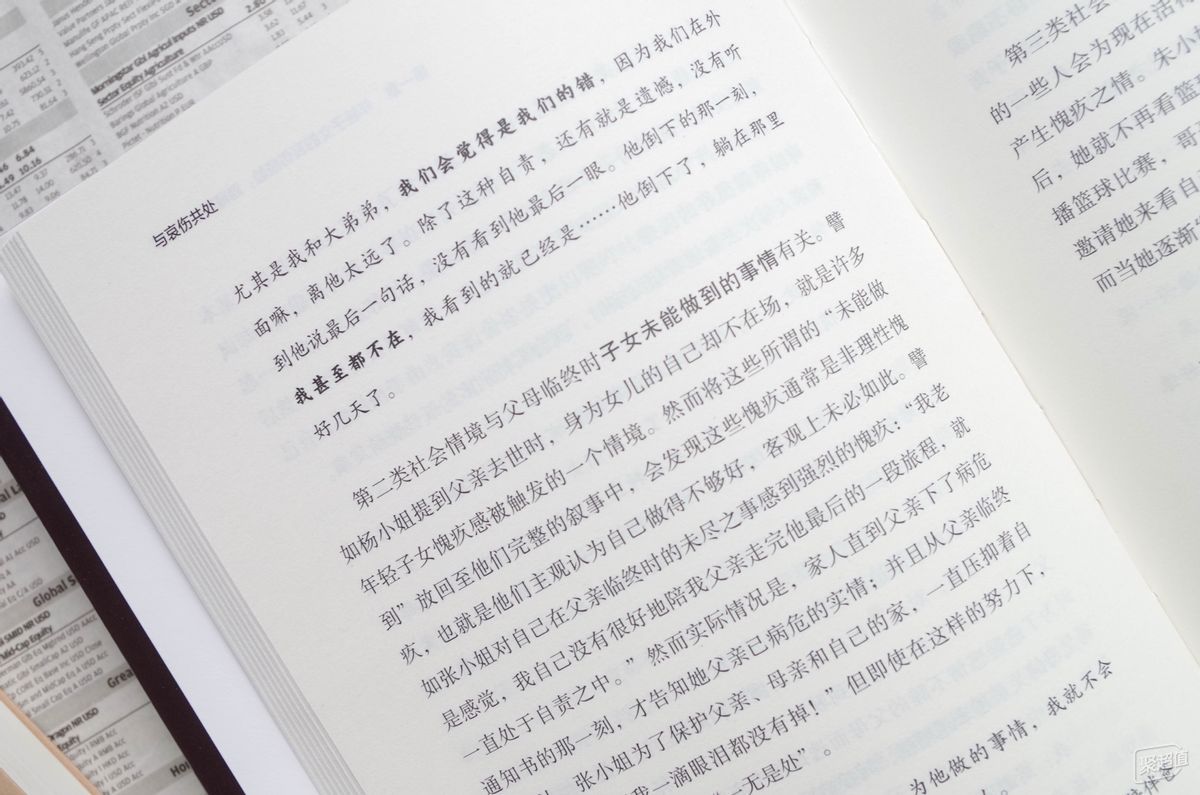 与哀伤共处
尤其是我和大弟弟，我们会觉得是我们的错，因为我们在外
面嘛，离他太远了。除了这种自责，还有就是遗憾，没有听
到他说最后一句话，没有看到他最后一眼。他倒下的那一刻，
我甚至都不在，我看到的就已经是……他倒下了，躺在那里
好几天了。
第二类社会情境与父母临终时子女未能做到的事情有关。譬
如杨小姐提到父亲去世时，身为女儿的自己却不在场，就是许多
年轻子女愧疚感被触发的一个情境。然而将这些所谓的“未能做
到”放回至他们完整的叙事中，会发现这些愧疚通常是非理性愧
疚，也就是他们主观认为自己做得不够好，客观上未必如此。譬
如张小姐对自己在父亲临终时的未尽之事感到强烈的愧疚：“我老
是感觉，我自己没有很好地陪我父亲走完他最后的一段旅程，就
一直处于自责之中。”然而实际情况是，家人直到父亲下了病危
通知书的那一刻，才告知她父亲已病危的实情；并且从父亲临终
，张小姐为了保护父亲、母亲和自己的家，一直压抑着自
我一滴眼泪都没有掉！”但即使在这样的努力下，
“一无是处”。
为他做的事情，我就不会
第三类社会
的一些人会为现在活
产生愧疚之情。朱小
后，她就不再看篮
播篮球比赛，哥
邀请她来看自
而当她逐渐
Morningstar Gbl Agricul Inputs NR USD
Sector Equity Agriculture
Baring Global Agriculture A GBP
6.84
10.16
Global S
Mid-Cap Equity
Equity I RMB Acc
聚超值